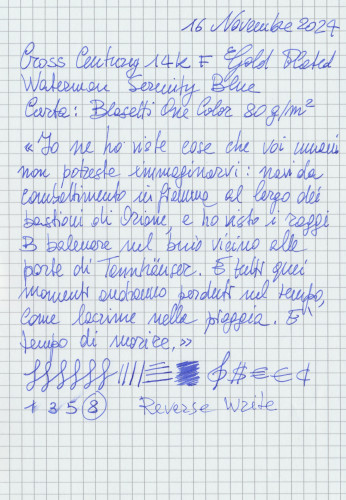 16 Novembre 2024
Cross Century 14k F Gold Plated
Waterman Serenity Blue
Carta: Blasetti One Color 80 g/m²
«Io ne ho viste cose che voi umani
non potreste immaginarvi: navi da
combattimento in fiamme al largo dei
bastioni di Orione, e ho visto i raggi
B balenare nel buio vicino alle
porte di Tannhäuser. E tutti quei
momenti andranno perduti nel tempo,
come lacrime nella pioggia. E^
tempo di morire.»
$ € € ¢
1 3 5 8 Reverse Write